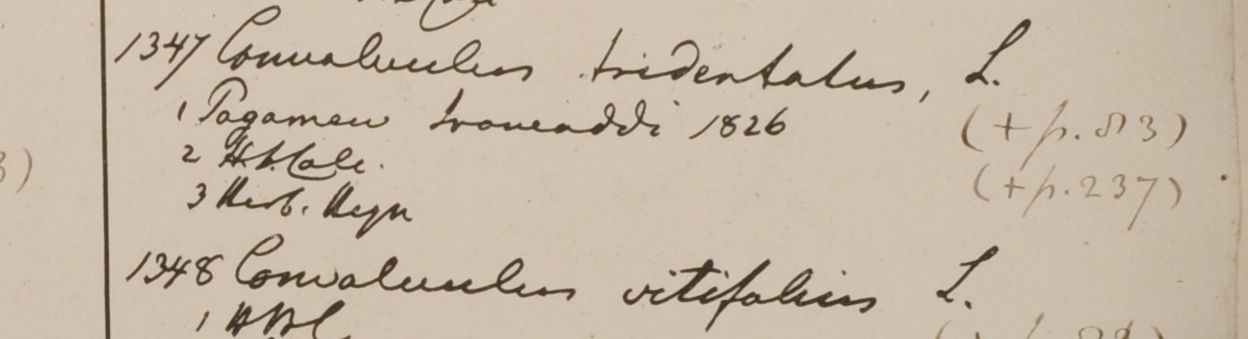 1347 Convolvulus tridentatus, L.
1 Pagamew Irowaddi 1826 (+ p. 83)
2 H.b. Calc. (+ p. 237)
3 Herb. Heyn
1348 Convolvulus vitifolius L.
1 HBC